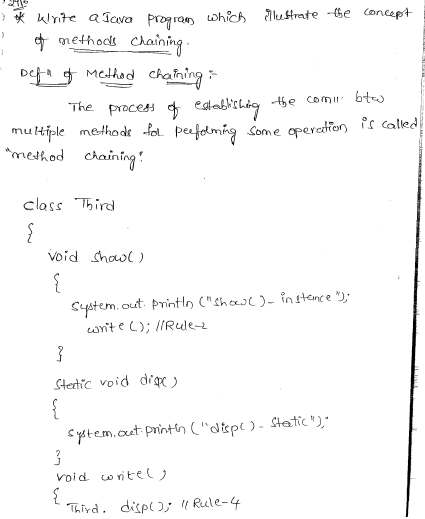 * Write a Java program which illustrate the concept
of methods chaining.
Defn of Method chaining :-
The process of establishing the comu: btw
multiple methods for performing some operation is called
"method chaining".
class Third
{
void show()
{
System.out.println ("show()- instance");
write(); //Rule-2
}
static void disp()
{
System.out.println ("disp()- static");
}
void write()
{
Third. disp(); // Rule-4